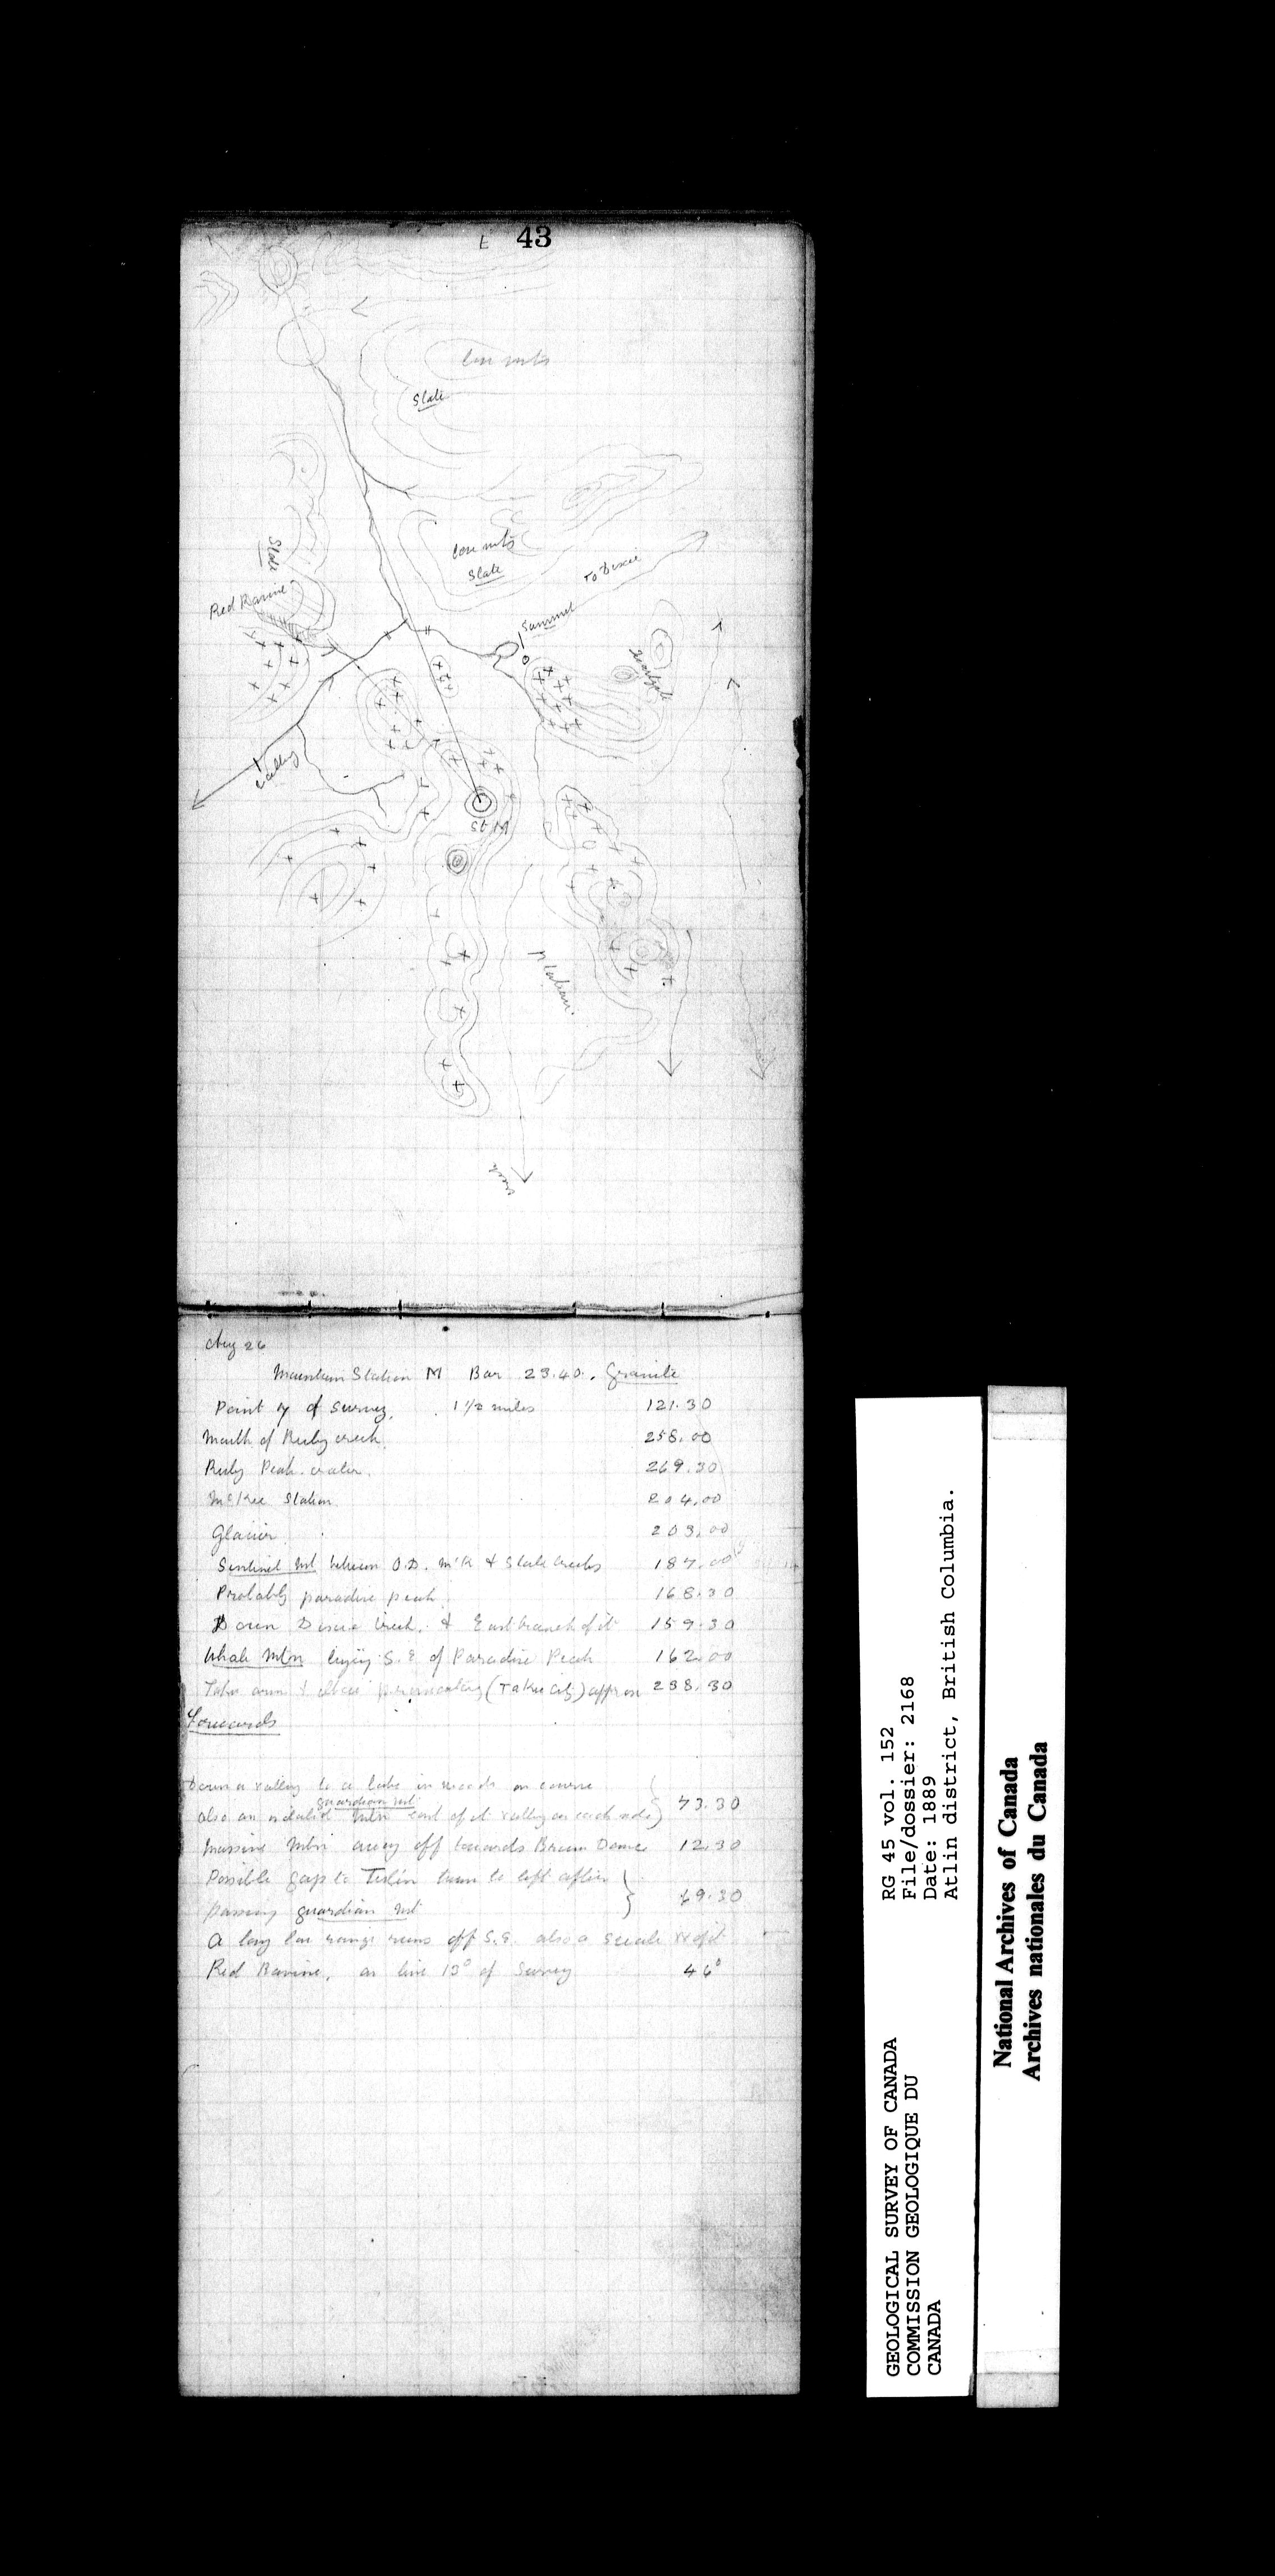 E 43
low mts
Slate
low mts
Slate
To Dixie
Slate
Red Ravine
Summit
Valley
St M
Plateau
creek
Aug 26
Mountain Station M Bar 23.40. Granite
Point 7 of Survey. 1 1/2 miles 121.30
Mouth of Ruby creek. 258.00
Ruby Peak. crater. 269.30
McKee Station. 204.00
Glacier 203.00
Sentinel Mt between O.D. McK & Slate Creeks 187.00
Probably paradise peak. 168.30
Down Dixie Creek. & East branch of it 159.30
Whale Mtn lying S.E. of Paradise Peak 162.00
Taku arm & (Taku city) approx 238.30
Forwards
Down a valley to a lake in woods on course
guardian mt
also an isolated Mtn east of it valley on each side } 73.30
Massive Mtn away off towards Brown Dome 12.30
Possible gap to Teslin turn to left after
passing guardian mt } 69.30
A long low range runs off S.E. also a of it
Red Ravine, on line 13° of Survey 46°
GEOLOGICAL SURVEY OF CANADA
COMMISSION GEOLOGIQUE DU
CANADA
RG 45 vol. 152
File/dossier: 2168
Date: 1889
Atlin district, British Columbia.
National Archives of Canada
Archives nationales du Canada